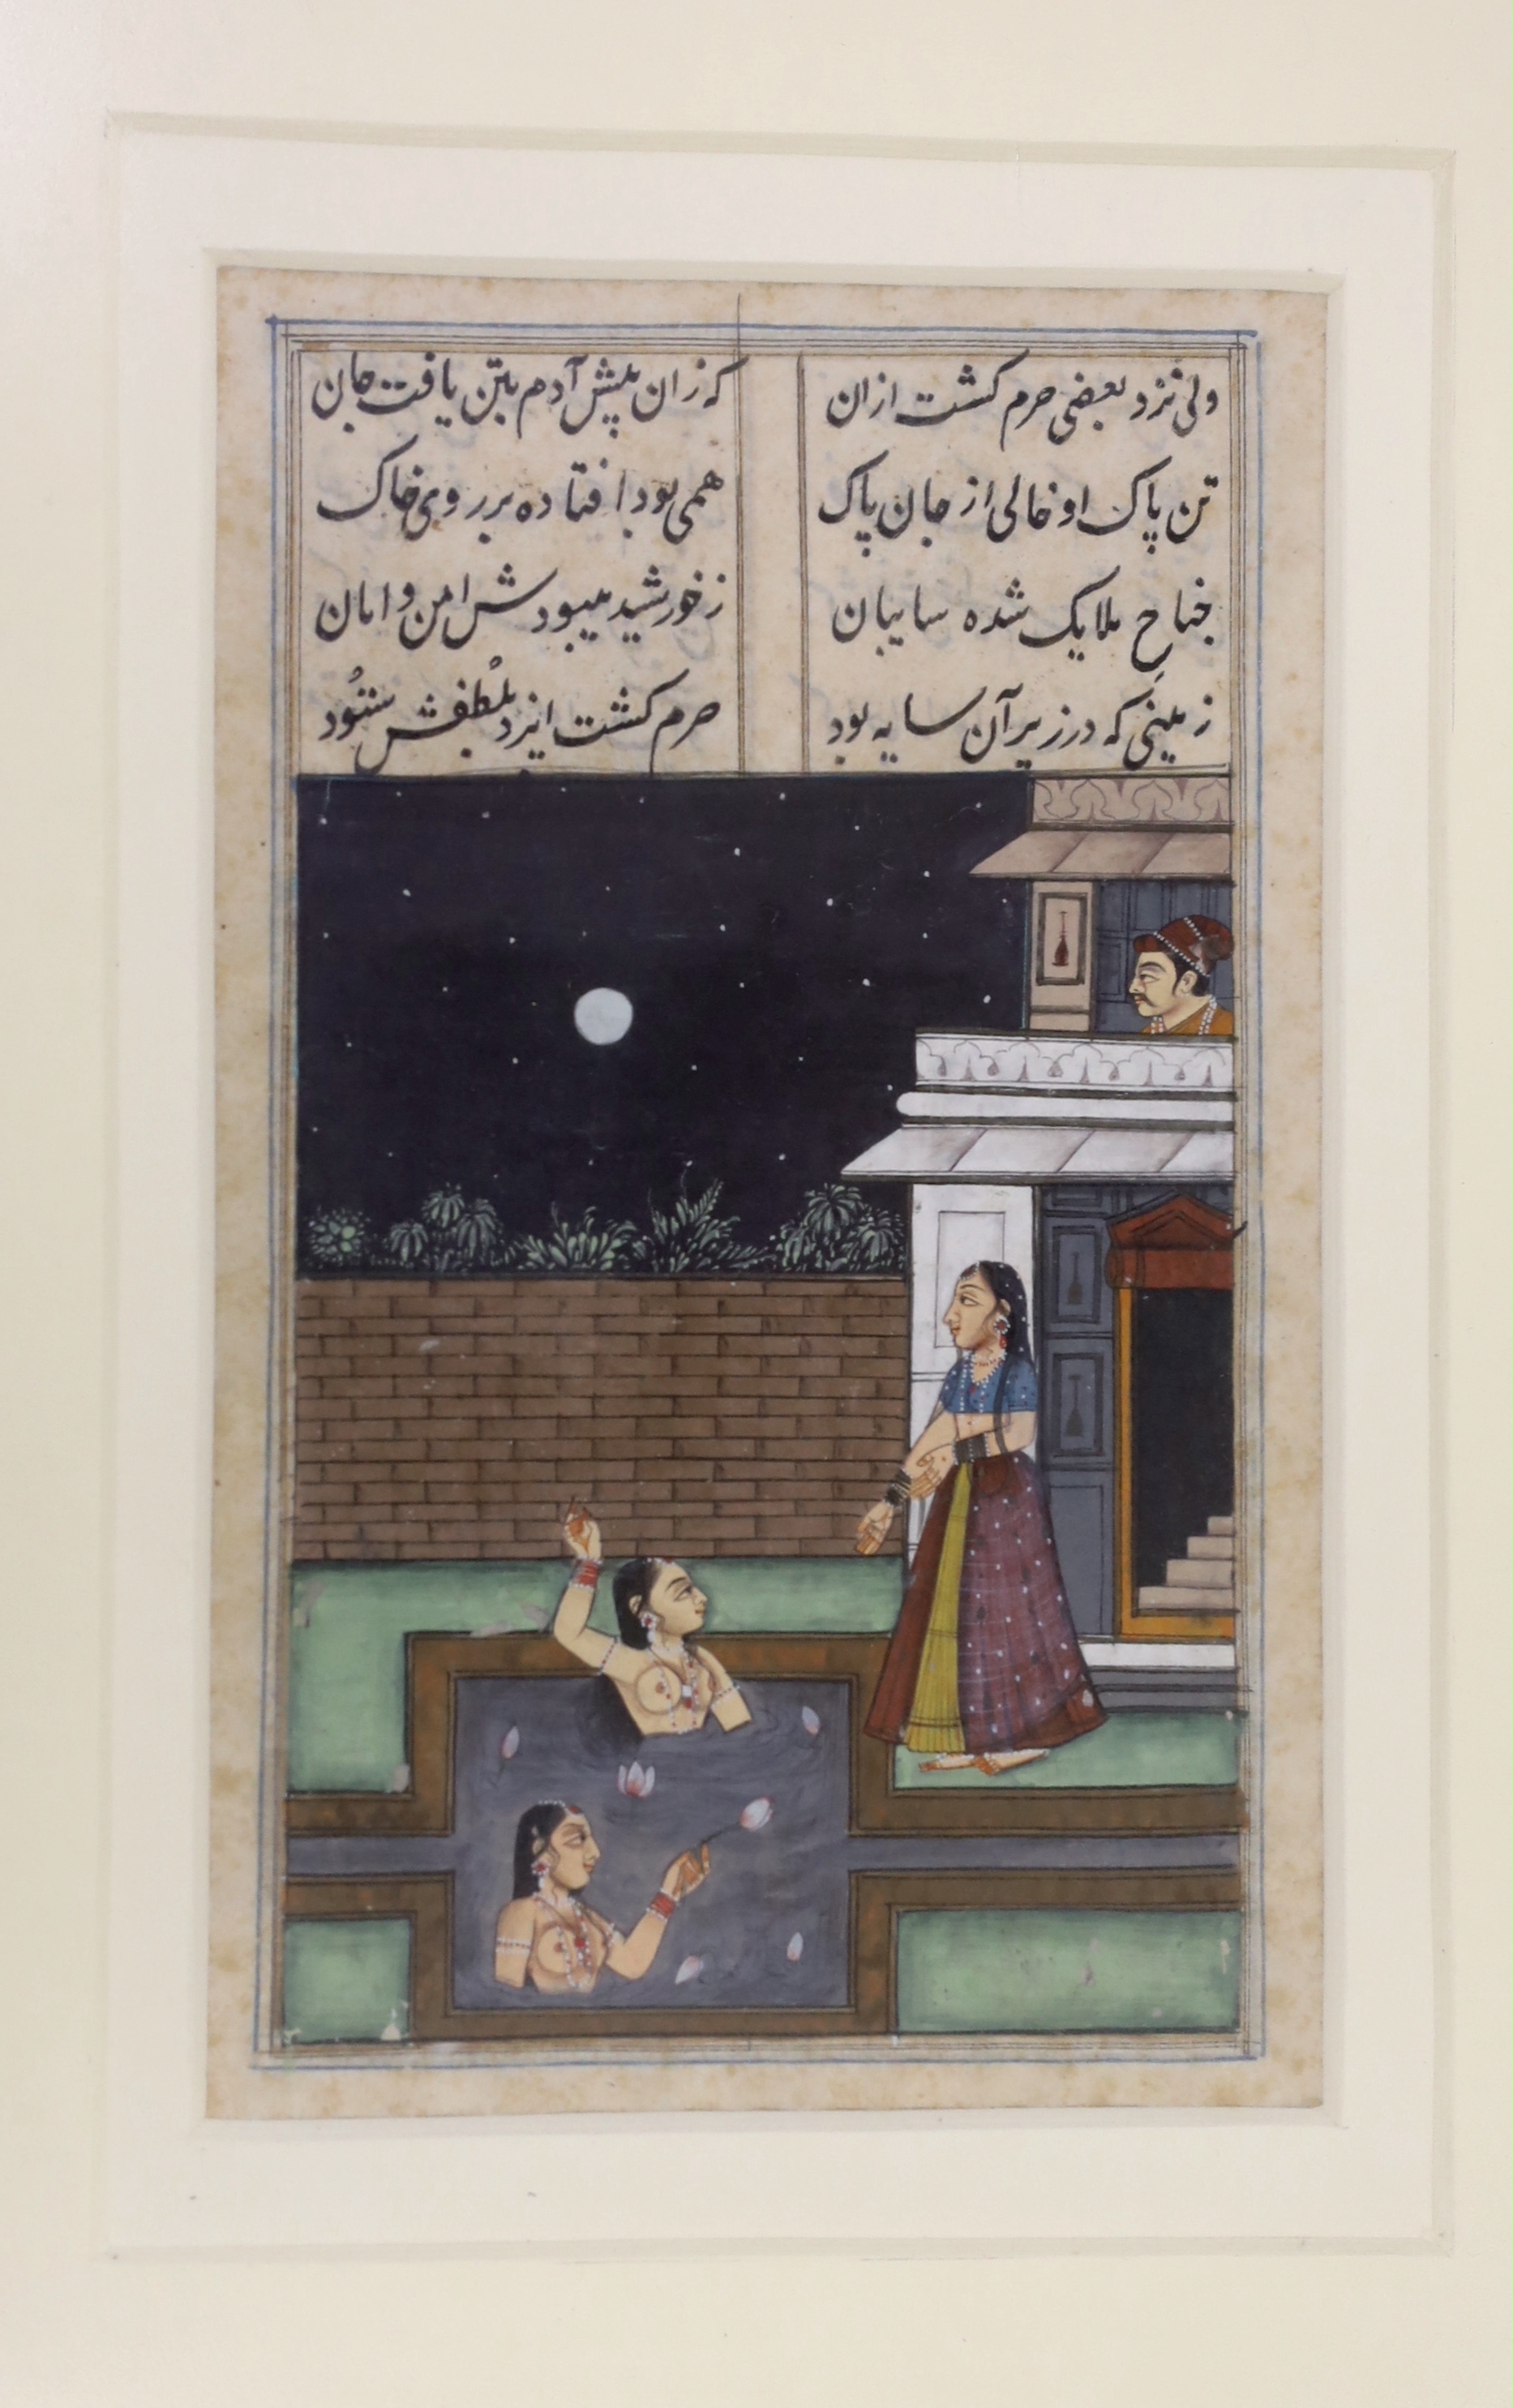 ولی نزد بعضی حرم کشت ازان که زان پیش آدم بتن یافت جان
تن پاک او خالی از جان پاک همی بود افتاده بر روی خاک
جناح ملایک شده سایبان ز خورشید میبودش امن و امان
زمینی که در زیر آن سایه بود حرم کشت ایزد بلُطفش ستُود